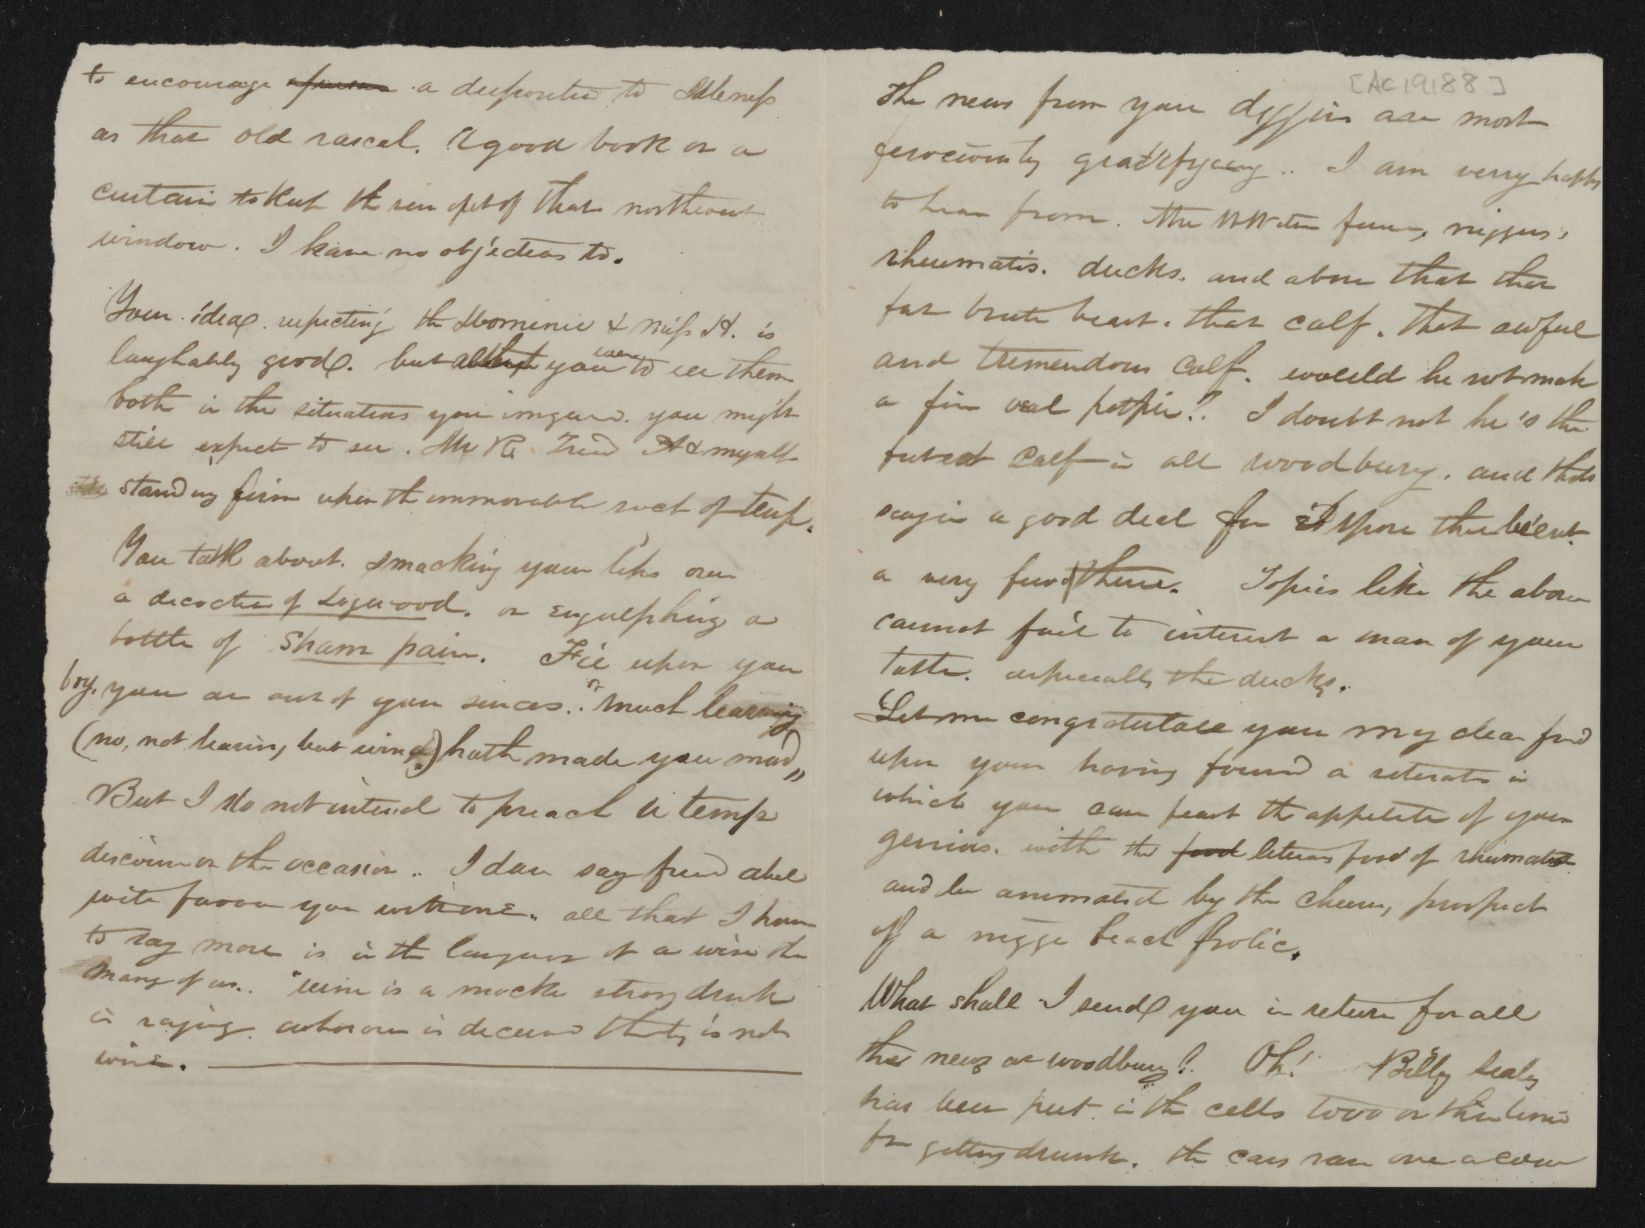 to encourage a person a disposition to Idleness
as that old rascal. A good book or a
curtain to Keep the sun out of that northeast
window. I have no objections to.
Your ideas respecting the Dominie & Miss H. is
laughably good. but you were to see them
both in the situations you imagined. you might
still expect to see. Mr R. Friend A & myself
standing firm upon the immovable rock of temp.
You talk about. smacking your lips over
a decoction of Logwood. or engulphing a
bottle of Sham pain. Fie upon you
boy. you are out of your sences. "Much learning
(no, not learning, but wine) hath made you mad"
But I do not intend to preach a temp
discourse on the occasion.. I dare say friend abel
will favour you with one. all that I have
to say more is in the language of a wiser than
many of us.. "wine is a mocker strong drink
is raging whosoever is deceived thereby is not
wise.
[AC 19188]
The news from your diggins are most
ferociously gratifying.. I am verry happy
to hear from. Mr fever, niggers,
rheumatis. ducks. and above that that
fat brute beast. that calf. that awful
and tremendous Calf. would he not make
a fine veal potpie?. I doubt not he's the
Calf in all woodbury. and thats
sayin a good deal for I spose there be'ent
a very few of them there. Topics like the above
cannot fail to interest a man of your
taste. especially the ducks.
Let me congratulate you my dear frnd
upon your having found a retreat in
which you can feast the appetite of your
genius. with the food literary food of rheumatis
and be animated by the cheery prospect
of a nigge beach frolic.
What shall I send you in return for all
the news at woodbury? Oh! Billy Sealy
has been put in the cells two or three times
for getting drunk. the cars ran over a cow